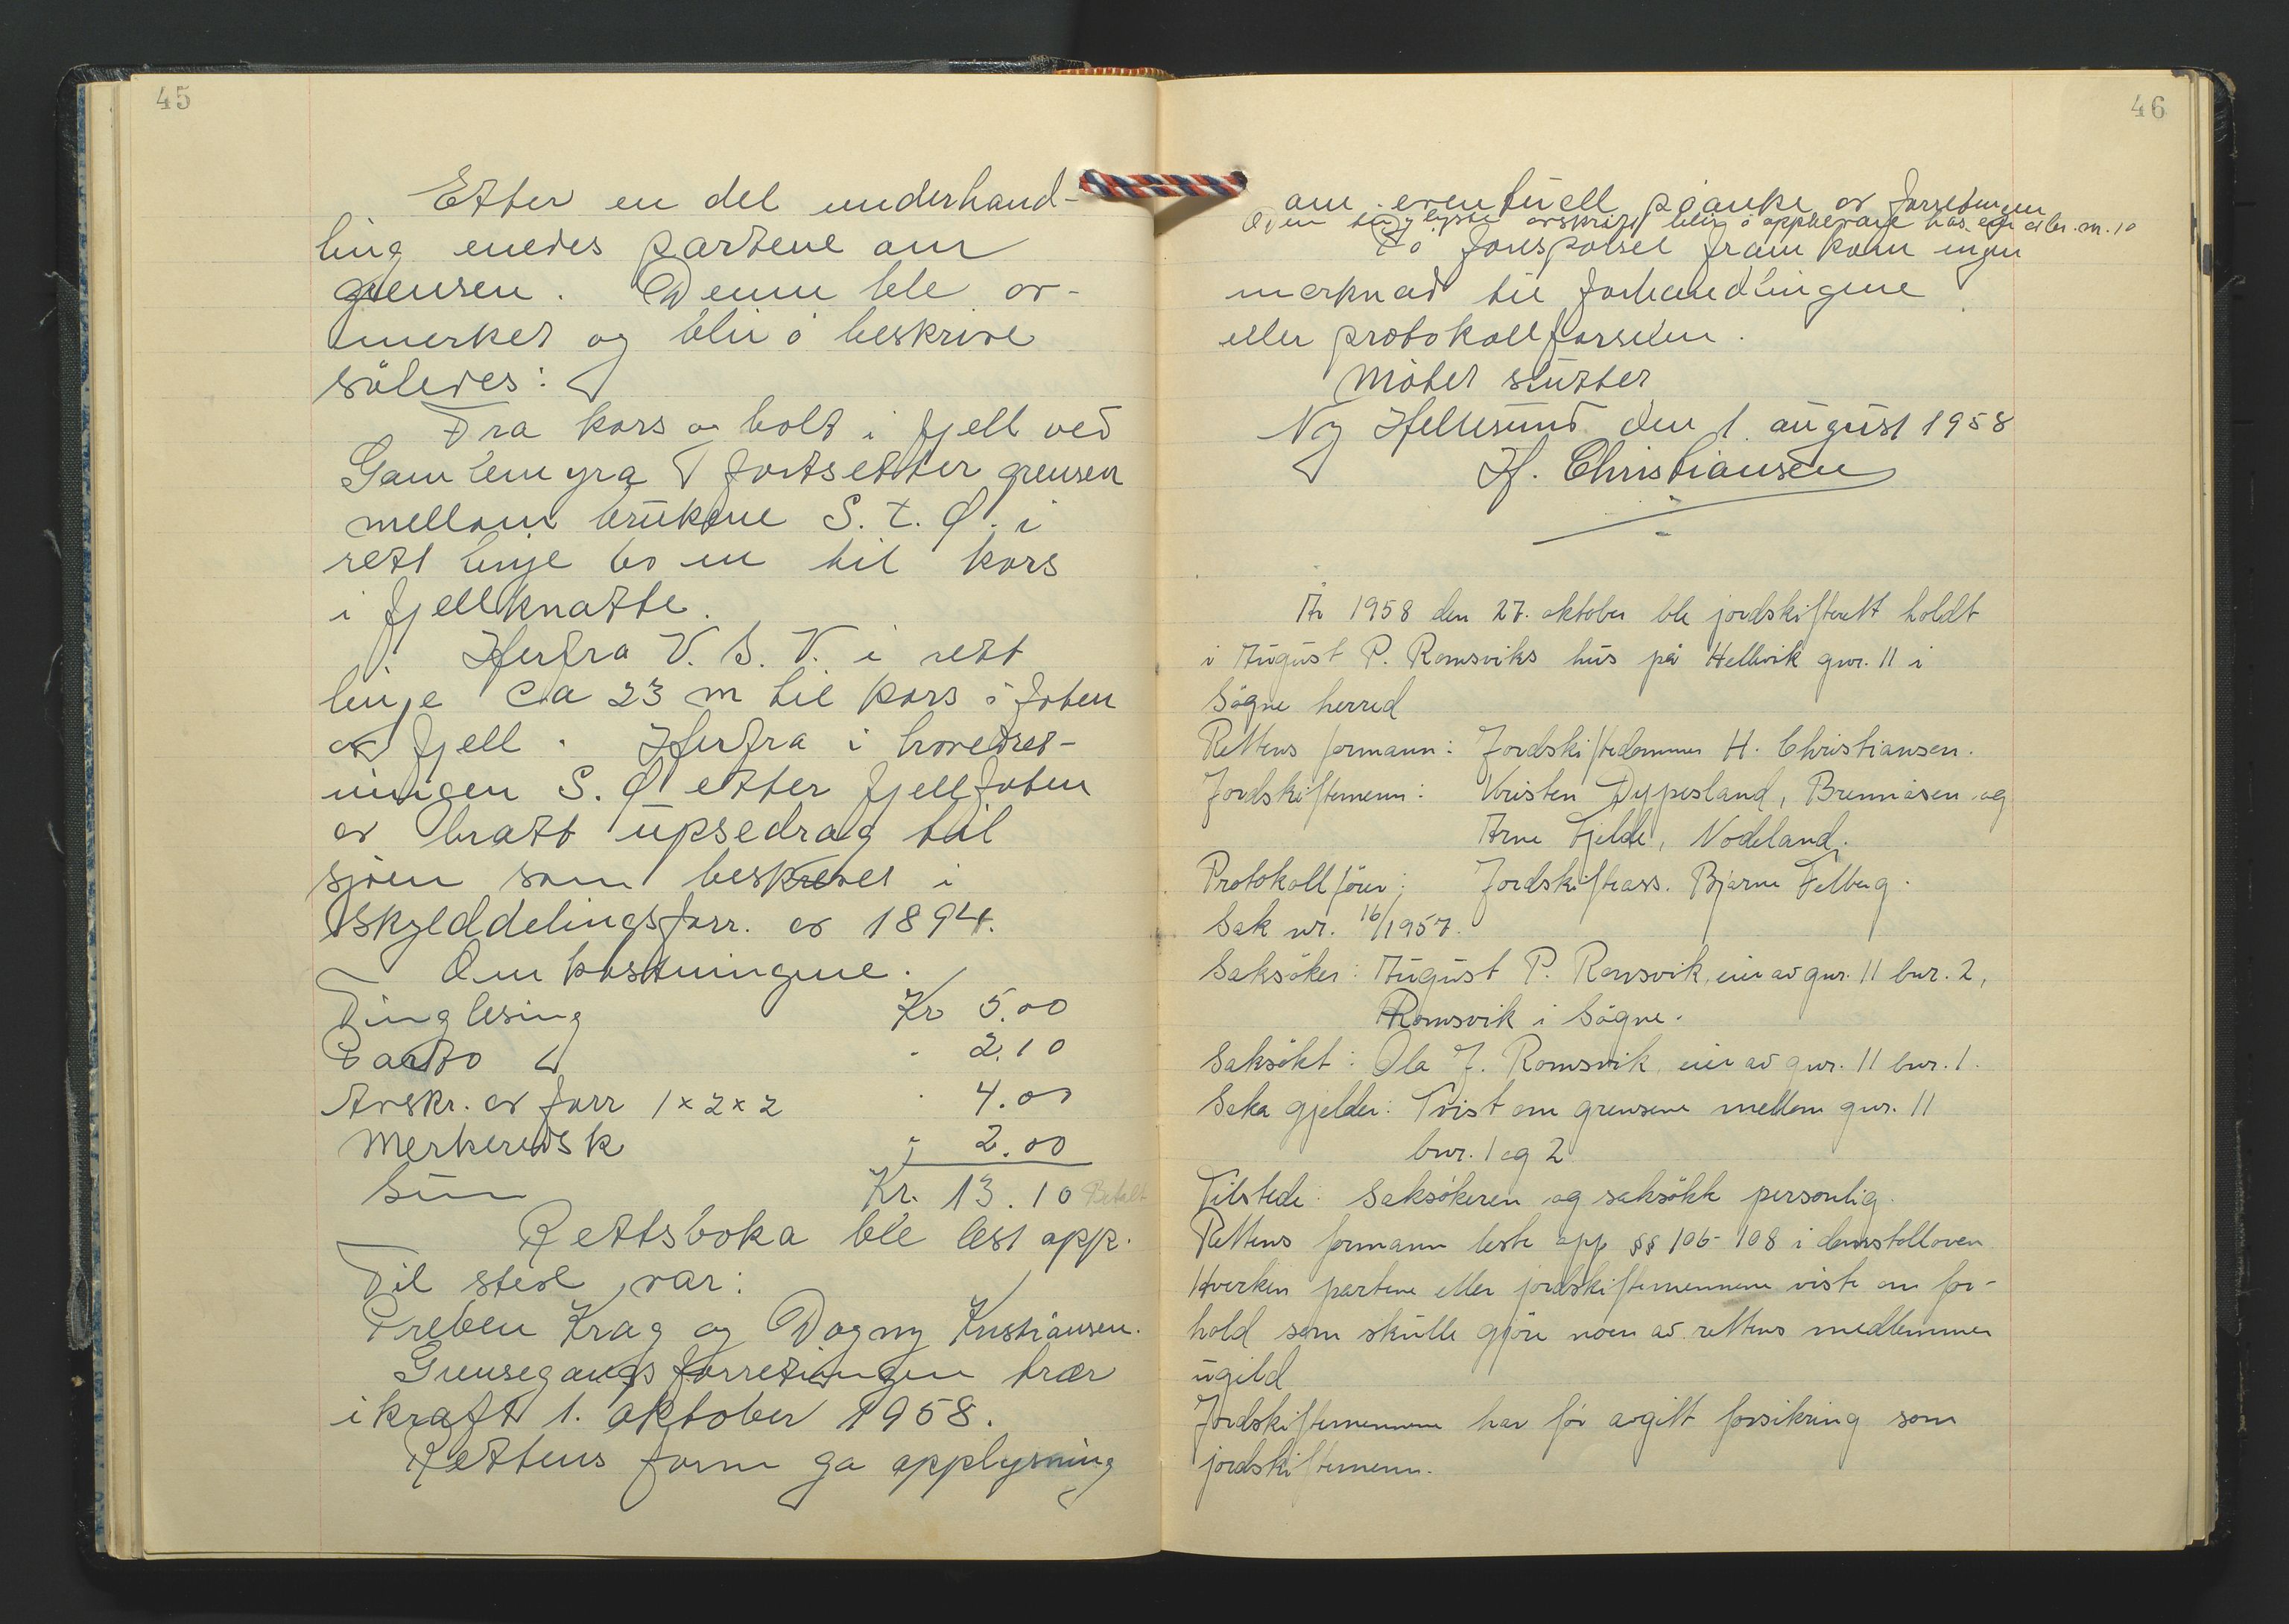 45
Etter en del underhand-
ling enedes partene om
grensen. Denne ble av-
merket og blir å beskrive
således:
Fra kors og bolt i fjell ved
Gamlemyra fortsetter grensen
mellom brukene S. t. Ø. i
rett linje 60 m til kors
i fjellknatte.
Herfra V. S. V. i rett
linje ca 23 m til kors i foten
av fjell. Herfra i hovedret-
ningen S. Ø etter fjellfoten
av bratt upsedrag til
sjøen som beskrevet i
skylddelingsforr. av 1894.
Omkostningene.
Tinglesing Kr 5.00
Porto - 2.10
Avskr. av forr 1x2x2 - 4.00
Merkeredsk - 2.00
Sum Kr. 13.10 Betalt
Rettsboka ble lest opp.
Til stede var:
Preben Krag og Dagny Kristiansen.
Grensegangsforretningen trær
i kraft 1. oktober 1958.
Rettens form ga opplysning
46
om eventuell påanke av forretningen
Den tinglyste avskrift blir å oppbevare hos eier av br. nr. 10
På forespørsel framkom ingen
merknad til forhandlingene
eller protokollførselen.
Møtet sluttet
Ny Hellesund den 1. august 1958
H. Christiansen
År 1958 den 27. oktober ble jordskifterett holdt
i August P. Romsviks hus på Hellvik gnr. 11 i
Søgne herred
Rettens formann: Jordskiftedommer H. Christiansen.
Jordskiftemenn: Kristen Dypesland, Brennåsen og
Arne Fjelde, Nodeland.
Protokollfører: Jordskifteass. Bjarne Felberg.
Sak nr. 16/1957.
Saksøker: August P. Romsvik, eier av gnr. 11 bnr. 2,
Romsvik i Søgne.
Saksøkt: Ola J. Romsvik, eier av gnr. 11 bnr. 1.
Saka gjelder: Tvist om grensene mellom gnr. 11
bnr. 1 og 2
Tilstede: Saksøkeren og saksøkte personlig.
Rettens formann leste opp §§ 106-108 i domstolloven.
Hverken partene eller jordskiftemennene viste om for-
hold som skulle gjøre noen av rettens medlemmer
ugild
Jordskiftemennene har før avgitt forsikring som
jordskiftemenn.